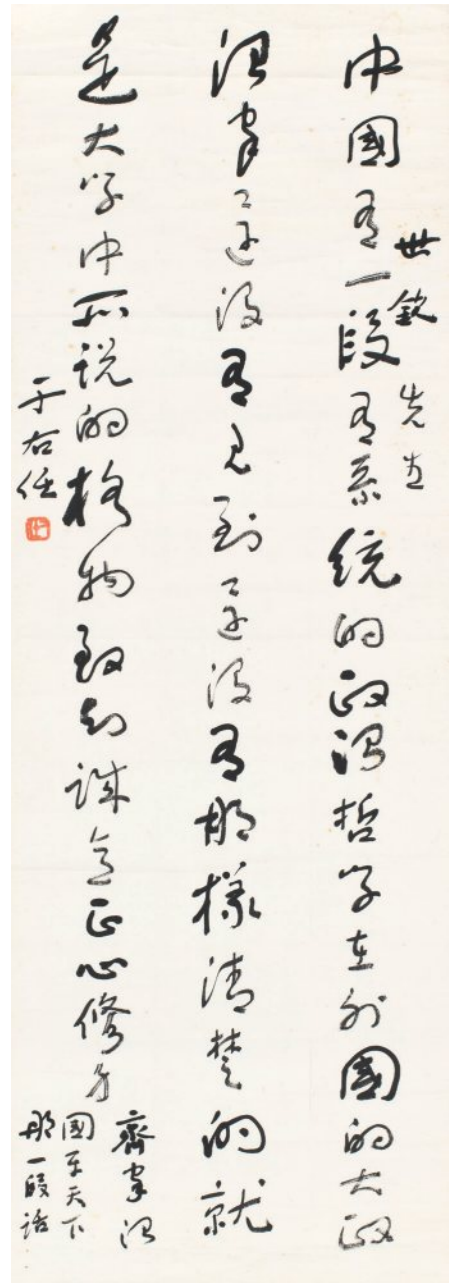 世欽先生
中國有一段有系統的政治哲學在外國的大政
治家還沒有見到還沒有那樣清楚的就
是大學中所說的格物致知誠意正心修身
齊家治
國平天下
那一段話
于右任